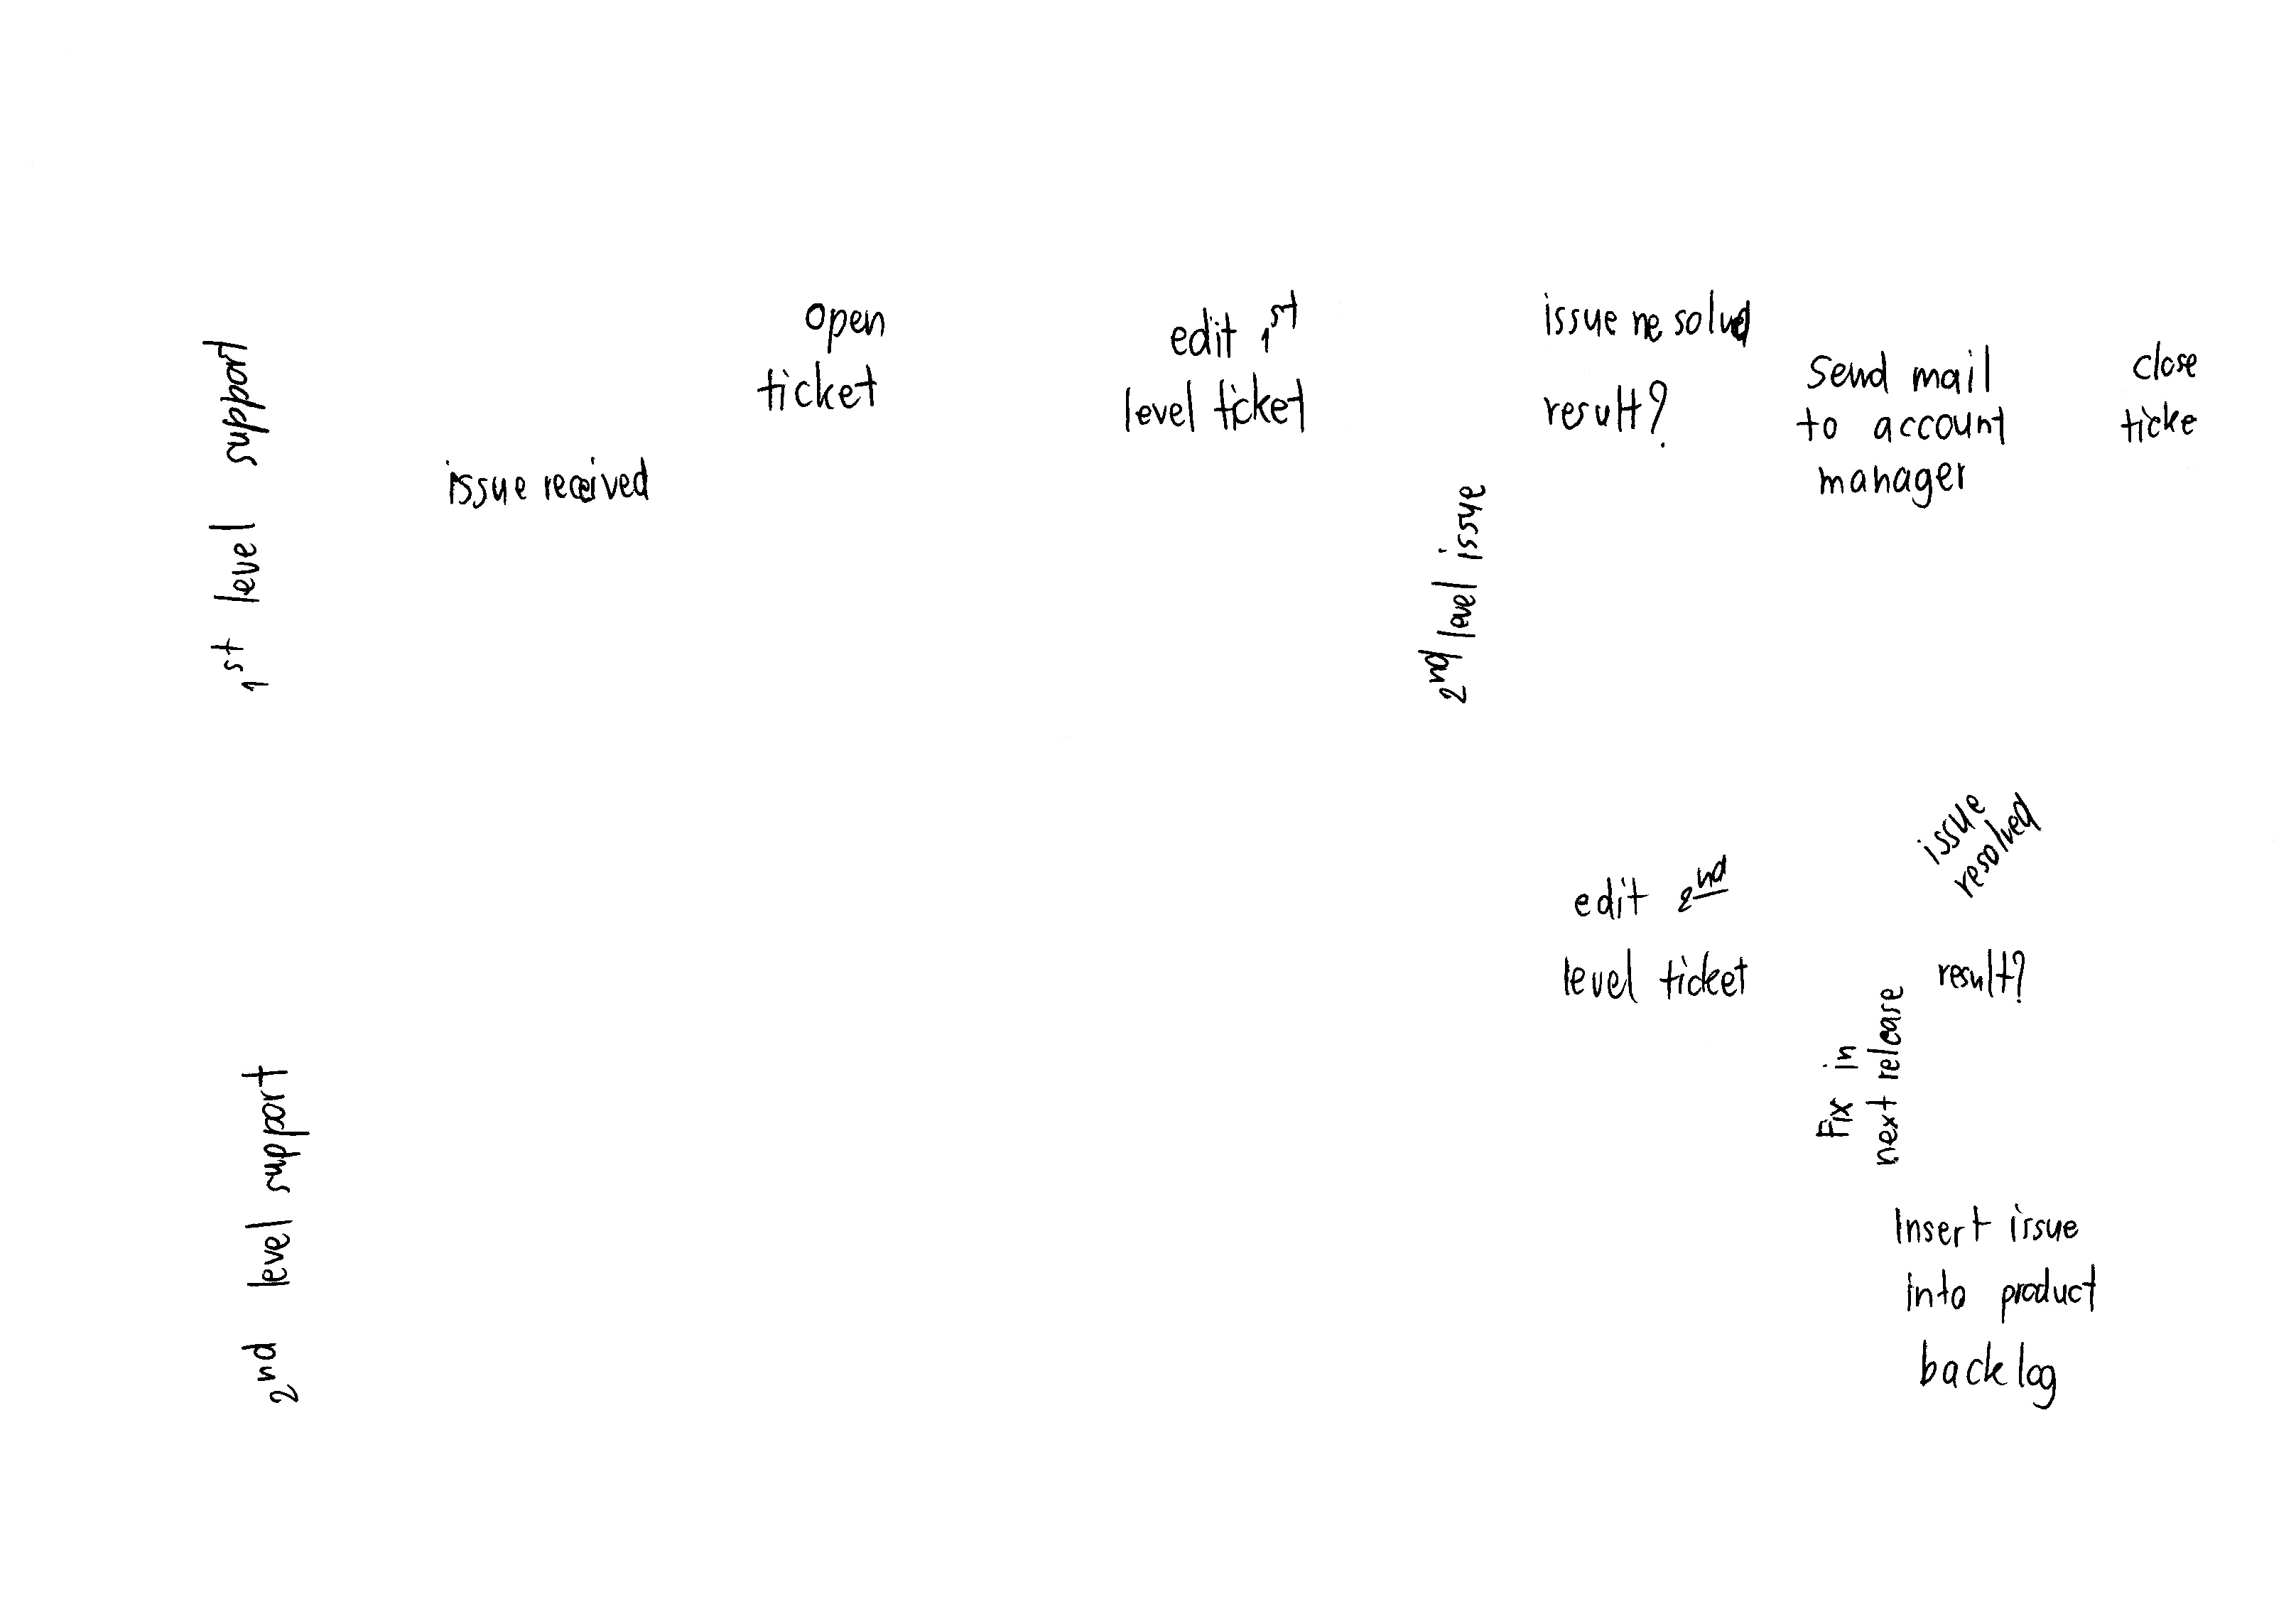 1st level support
issue received
open
ticket
edit 1st
level ticket
issue resolved
result?
2nd level issue
Send mail
to account
manager
close
ticke
2nd level support
edit 2nd
level ticket
issue
resolved
result?
Fix in
next release
Insert issue
into product
backlog